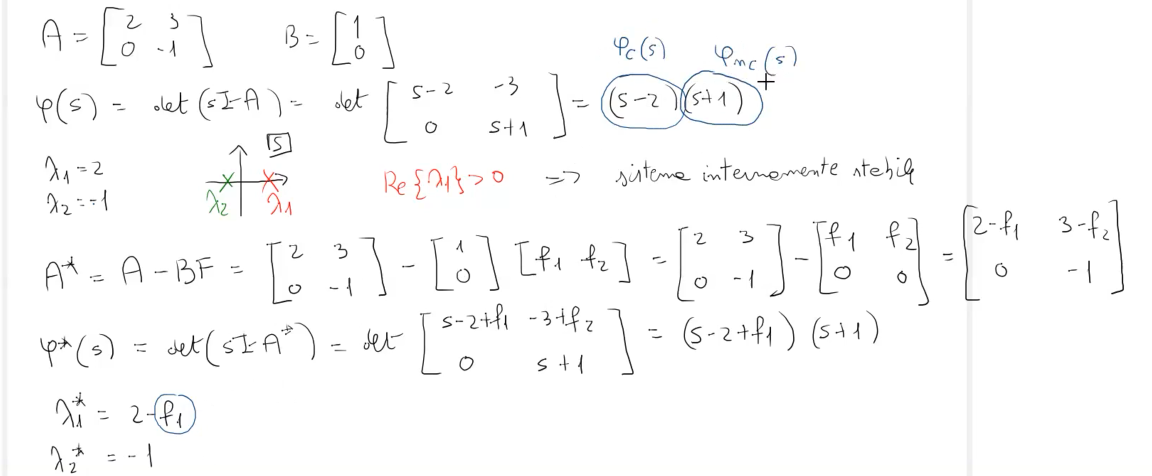 A = [2 3; 0 -1]   B = [1; 0]
φc(s)   φnc(s)
φ(s) = det(sI-A) = det [s-2 -3; 0 s+1] = (s-2)(s+1)
λ1 = 2   S
λ2 = -1   λ2   λ1   Re{λ1}>0 => sistema internamente stabile
A* = A - BF = [2 3; 0 -1] - [1; 0] [f1 f2] = [2 3; 0 -1] - [f1 f2; 0 0] = [2-f1 3-f2; 0 -1]
φ*(s) = det(sI-A*) = det [s-2+f1 -3+f2; 0 s+1] = (s-2+f1)(s+1)
λ1* = 2-f1
λ2* = -1